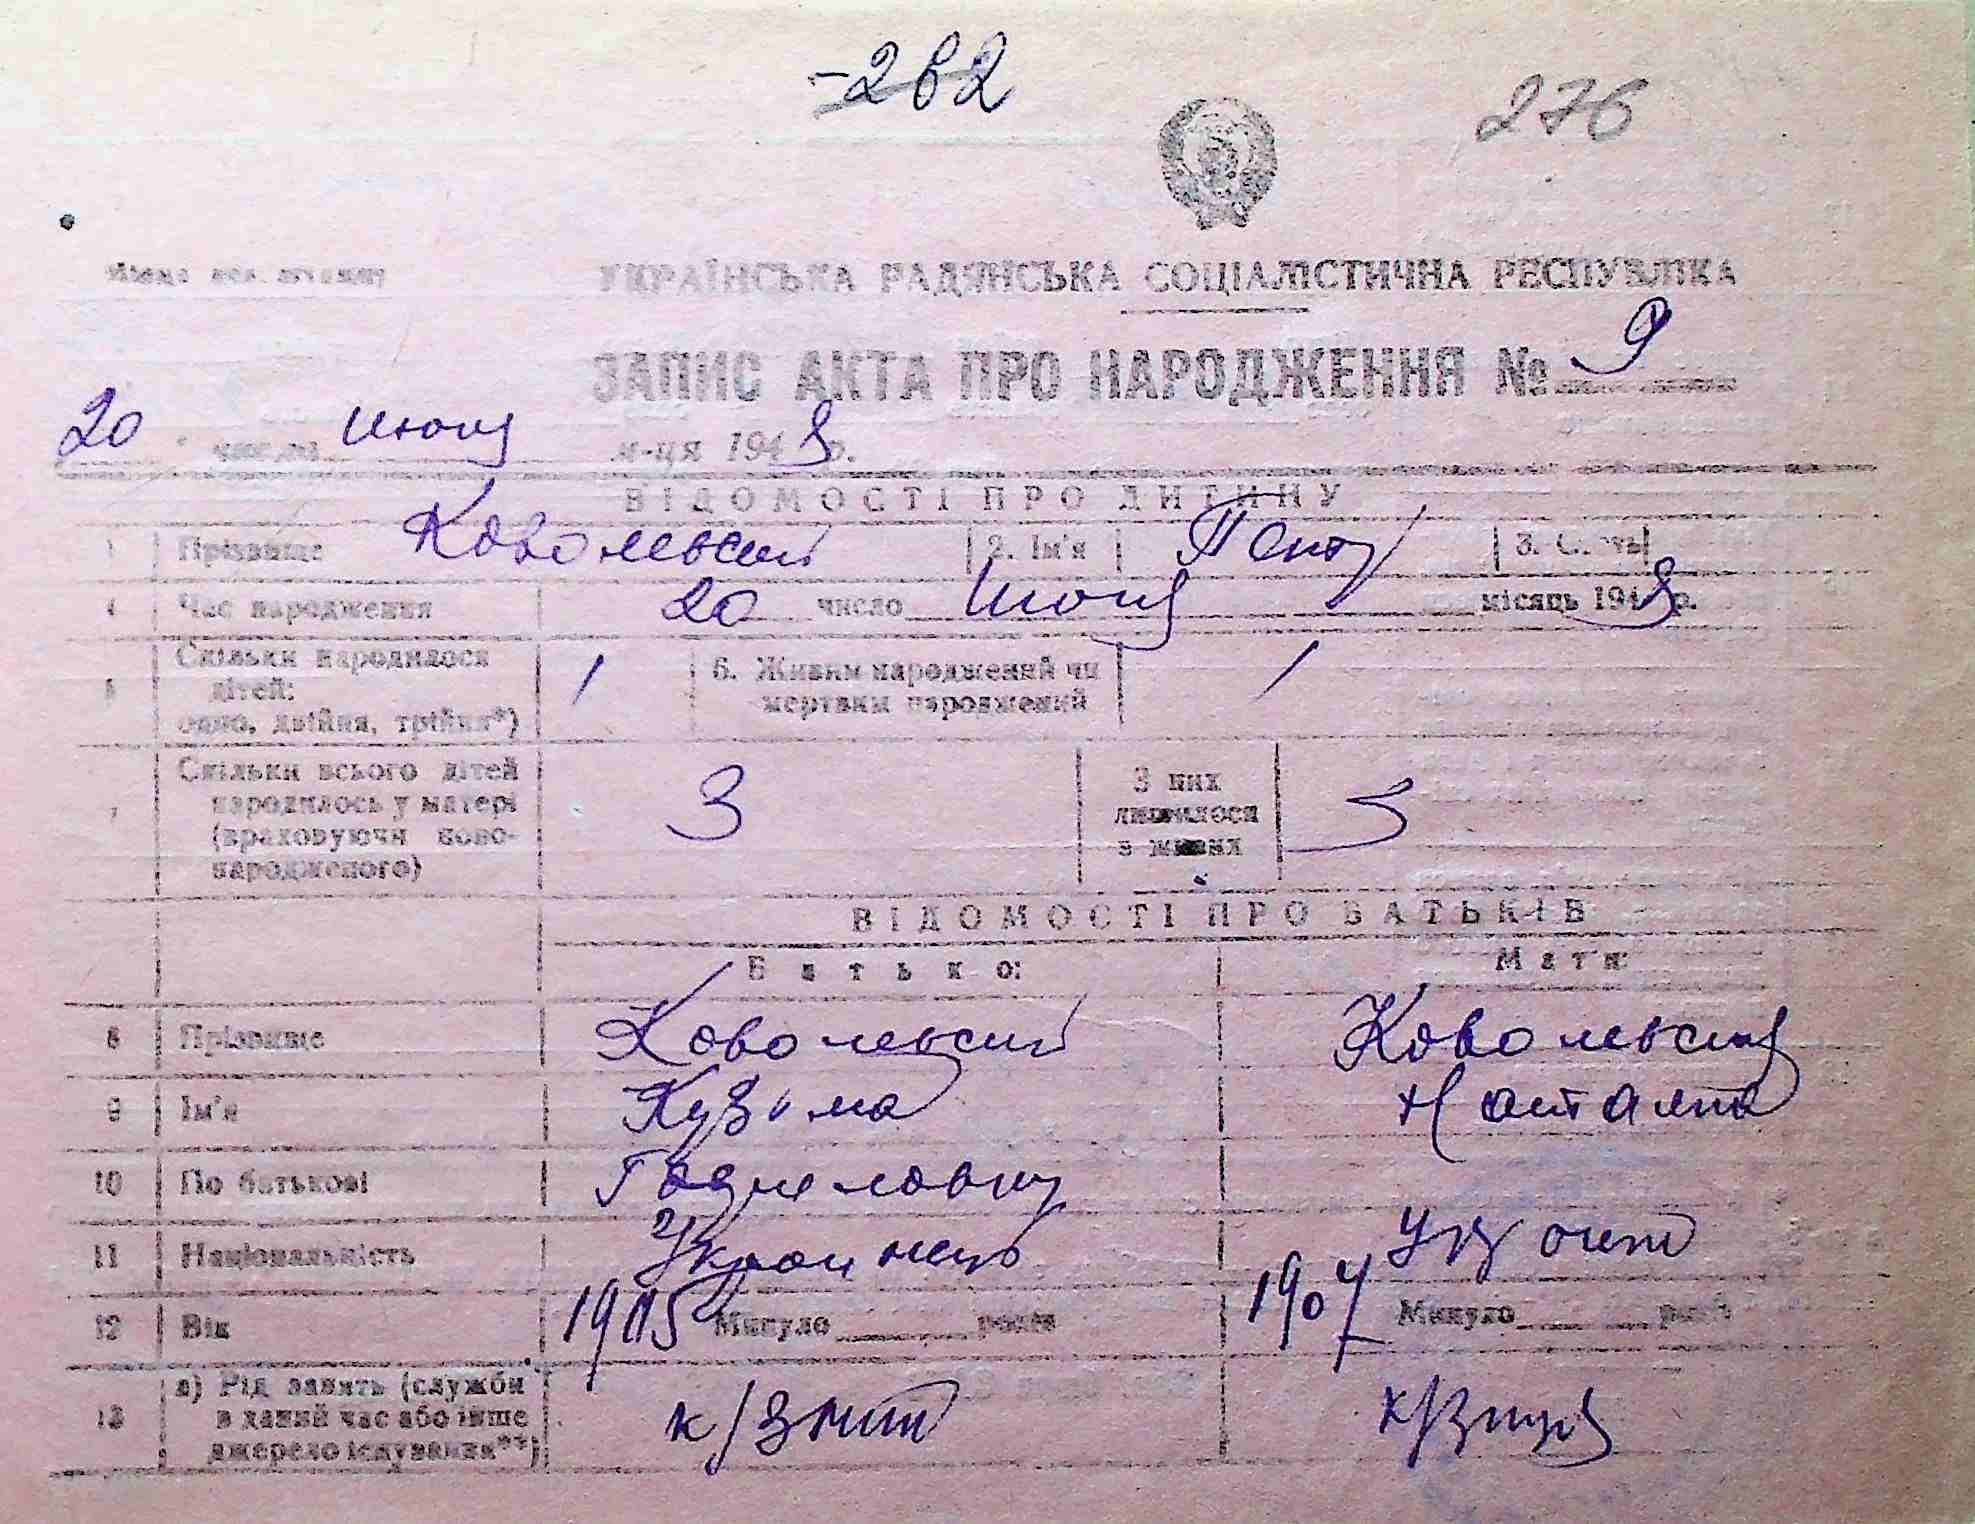 276
УКРАЇНСЬКА РАДЯНСЬКА СОЦІАЛІСТИЧНА РЕСПУБЛІКА
ЗАПИС АКТА ПРО НАРОДЖЕННЯ № 9
20 числа июля м-ця 194 р.
ВІДОМОСТІ ПРО ДИТИНУ
1 Прізвище Коволевский 2. Ім'я 3. Стать
4 Час народження 20 число Июля місяць 194 р.
5 Скільки народилося дітей: одно, двійня, трійня*) 1 6. Живим народжений чи мертвим народжений 1
7 Скільки всього дітей народилось у матері (враховуючи новонародженого) 3 З них лишилося в живих 3
ВІДОМОСТІ ПРО БАТЬКІВ
Батько: Мати:
8 Прізвище Коволевский Коволевская
9 Ім'я Кузьма Наталия
10 По батькові
11 Національність Украинец
12 Вік 1905 Минуло років 1907 Минуло років
13 а) Рід занять (служби в даний час або інше джерело існування**)